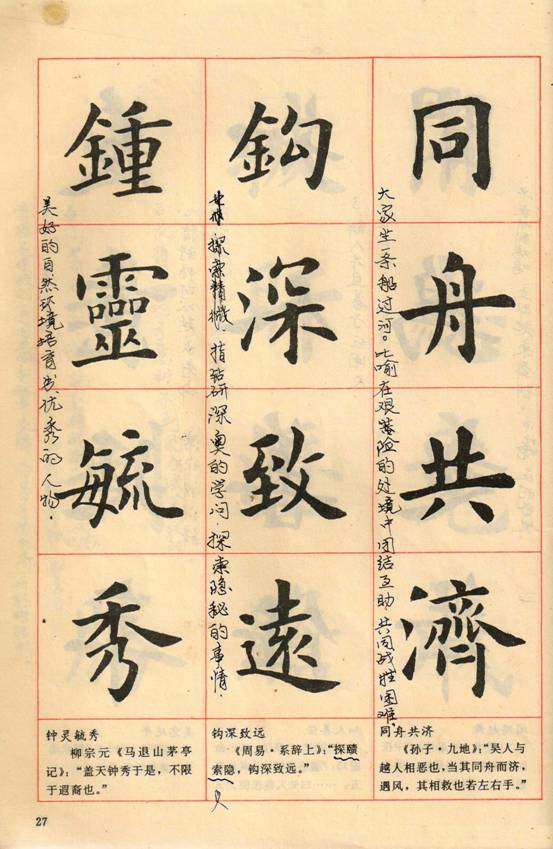 同舟共濟
大家坐一条船过河。比喻在艰险的处境中团结互助 共同战胜困难.
鈎深致遠
探索精微 指钻研深奥的学问.探索隐秘的事情.
鍾靈毓秀
美好的自然环境培育出优秀的人物.
同舟共济
《孙子·九地》：“吴人与
越人相恶也，当其同舟而济，
遇风，其相救也若左右手。”
钩深致远
《周易·系辞上》：“探赜
索隐，钩深致远。”
钟灵毓秀
柳宗元《马退山茅亭
记》：“盖天钟秀于是，不限
于遐裔也。”
27